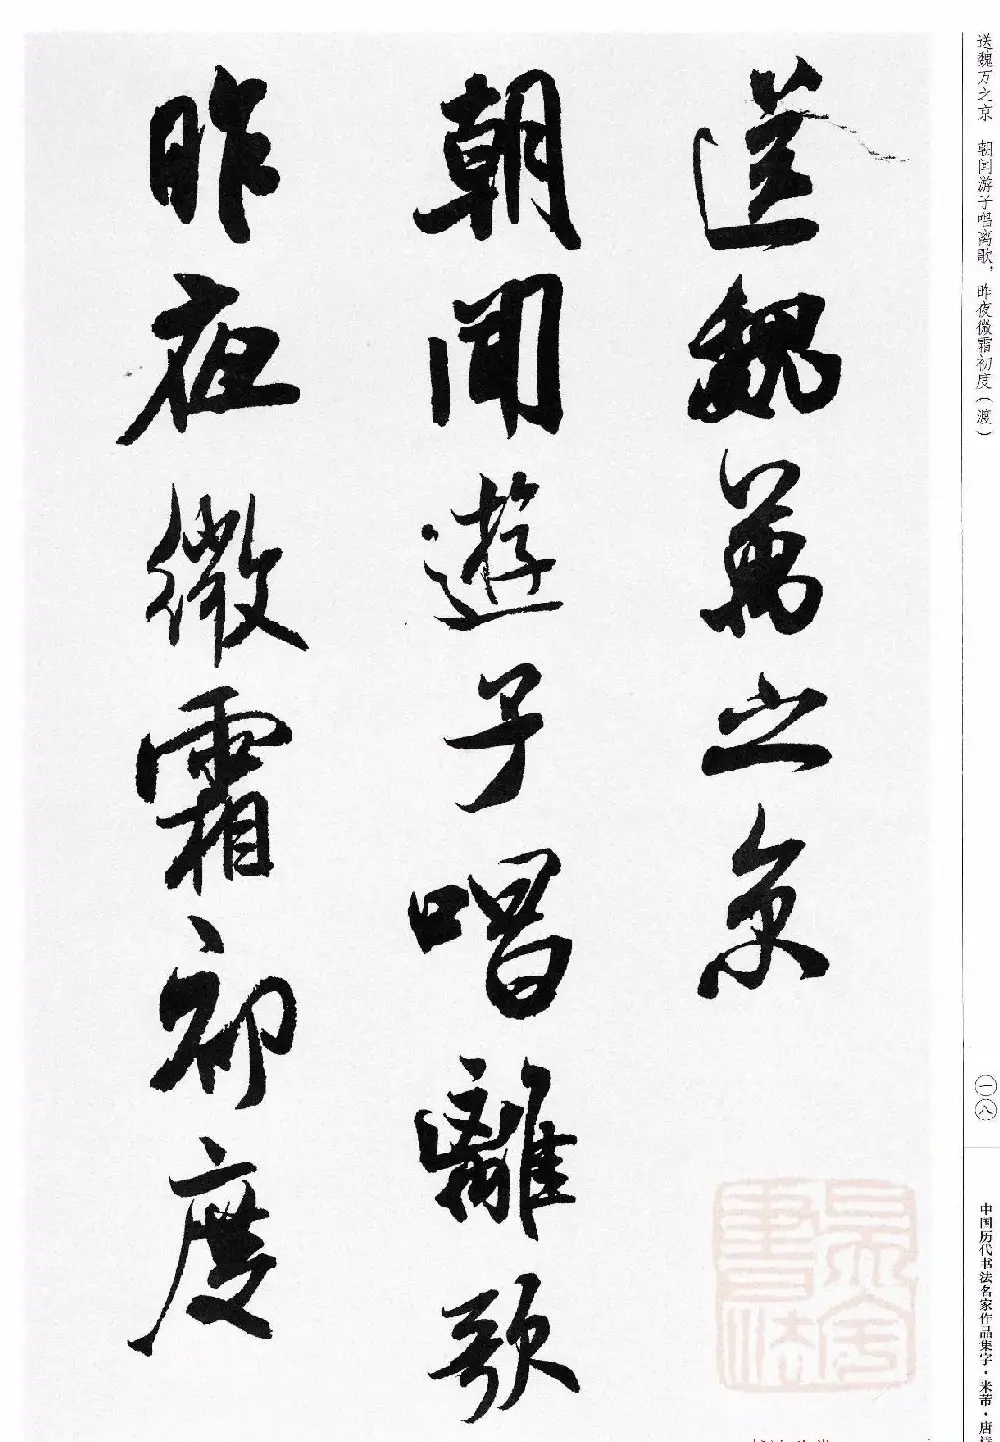 送魏萬之京
朝聞遊子唱離歌
昨夜微霜初度
送魏万之京 朝闻游子唱离歌，昨夜微霜初度（渡）
一八
中国历代书法名家作品集字·米芾·唐诗